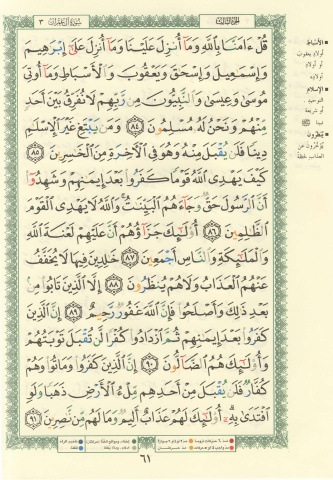 سُورَةُ آلِ عِمْرَانَ ٣
الجزء الثالث
قُلْ ءَامَنَّا بِٱللَّهِ وَمَآ أُنزِلَ عَلَيْنَا وَمَآ أُنزِلَ عَلَىٰٓ إِبْرَٰهِيمَ
وَإِسْمَٰعِيلَ وَإِسْحَٰقَ وَيَعْقُوبَ وَٱلْأَسْبَاطِ وَمَآ أُوتِىَ
مُوسَىٰ وَعِيسَىٰ وَٱلنَّبِيُّونَ مِن رَّبِّهِمْ لَا نُفَرِّقُ بَيْنَ أَحَدٍ
مِّنْهُمْ وَنَحْنُ لَهُۥ مُسْلِمُونَ ٨٤ وَمَن يَبْتَغِ غَيْرَ ٱلْإِسْلَٰمِ
دِينًا فَلَن يُقْبَلَ مِنْهُ وَهُوَ فِى ٱلْءَاخِرَةِ مِنَ ٱلْخَٰسِرِينَ ٨٥
كَيْفَ يَهْدِى ٱللَّهُ قَوْمًا كَفَرُوا۟ بَعْدَ إِيمَٰنِهِمْ وَشَهِدُوٓا۟
أَنَّ ٱلرَّسُولَ حَقٌّ وَجَآءَهُمُ ٱلْبَيِّنَٰتُ وَٱللَّهُ لَا يَهْدِى ٱلْقَوْمَ
ٱلظَّٰلِمِينَ ٨٦ أُو۟لَٰٓئِكَ جَزَآؤُهُمْ أَنَّ عَلَيْهِمْ لَعْنَةَ ٱللَّهِ
وَٱلْمَلَٰٓئِكَةِ وَٱلنَّاسِ أَجْمَعِينَ ٨٧ خَٰلِدِينَ فِيهَا لَا يُخَفَّفُ
عَنْهُمُ ٱلْعَذَابُ وَلَا هُمْ يُنظَرُونَ ٨٨ إِلَّا ٱلَّذِينَ تَابُوا۟ مِنۢ
بَعْدِ ذَٰلِكَ وَأَصْلَحُوا۟ فَإِنَّ ٱللَّهَ غَفُورٌ رَّحِيمٌ ٨٩ إِنَّ ٱلَّذِينَ
كَفَرُوا۟ بَعْدَ إِيمَٰنِهِمْ ثُمَّ ٱزْدَادُوا۟ كُفْرًا لَّن تُقْبَلَ تَوْبَتُهُمْ
وَأُو۟لَٰٓئِكَ هُمُ ٱلضَّآلُّونَ ٩٠ إِنَّ ٱلَّذِينَ كَفَرُوا۟ وَمَاتُوا۟ وَهُمْ
كُفَّارٌ فَلَن يُقْبَلَ مِنْ أَحَدِهِم مِّلْءُ ٱلْأَرْضِ ذَهَبًا وَلَوِ
ٱفْتَدَىٰ بِهِۦٓ أُو۟لَٰٓئِكَ لَهُمْ عَذَابٌ أَلِيمٌ وَمَا لَهُم مِّن نَّٰصِرِينَ ٩١
الأسباط
أولاد يعقوب
أو أولاد
أولاده
الإسلام
التوحيد
أو شريعة
نبينا ﷺ
يُنظَرُونَ
يُؤخَّرون عن
العذاب لحظة
٦١